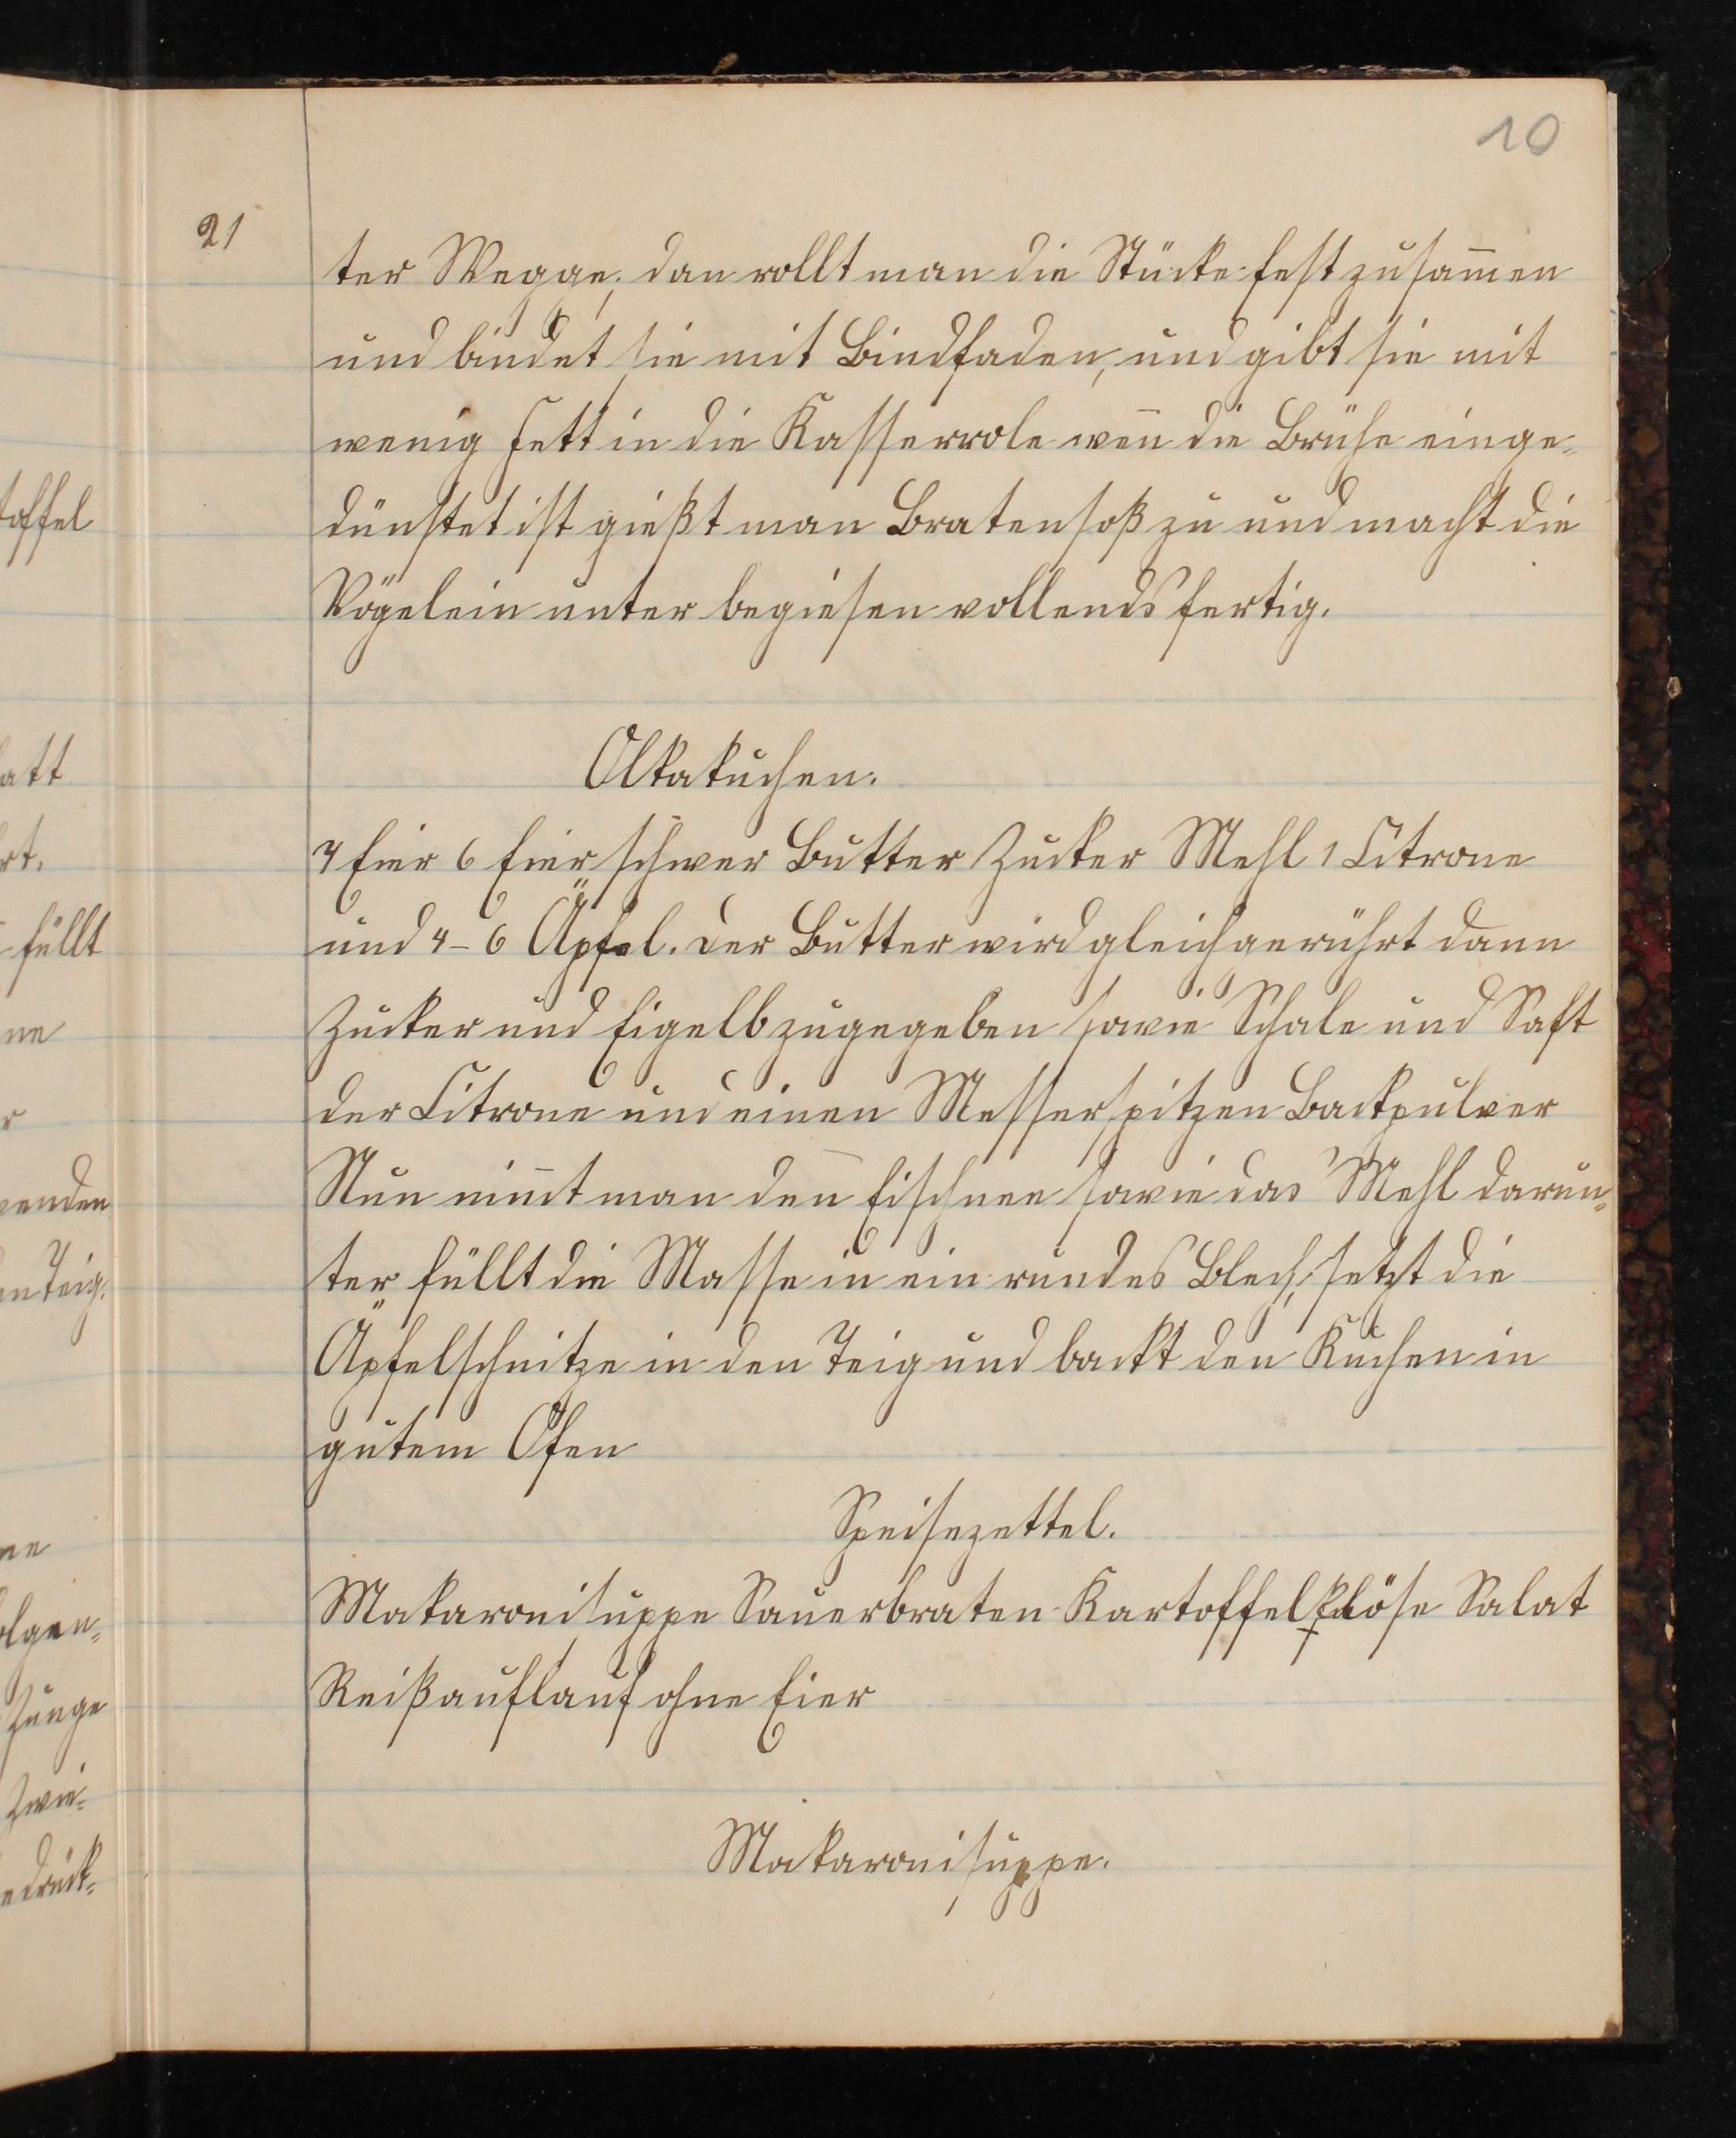 10
21
ter Wegge; dan rollt man die Stücke fest zusam̄en
und bindet sie mit Bindfaden, und gibt sie mit
wenig Fett in die Kasserrole wen̄ die Brühe einge-
dünstet ist gießt man Bratensoß zu und macht die
Vögelein unter begiesen vollends fertig.
Olkakuchen.
7 Eier 6 Eier schwer Butter Zucker Mehl 1 Citrone
und 4-6 Äpfel. Der Butter wird gleich gerührt dann
Zucker und Eigelb zugegeben sowie Schale und Saft
der Citrone und einen Messerspitzen Backpulver
Nun nim̄t man den̄ Eischnee sowie das Mehl darun-
ter füllt die Masse in ein rundes Blech, setzt die
Äpfelschnitze in den Teig und backt den Kuchen in
gutem Ofen
Speisezettel.
Makaronisuppe Sauerbraten Kartoffelklöse Salat
Reißauflauf ohne Eier
Makaronisuppe.
toffel
att
rt.
füllt
ne
r
wenden
en Teig.
ne
olgen-
Zunge
Zwie-
edrück-